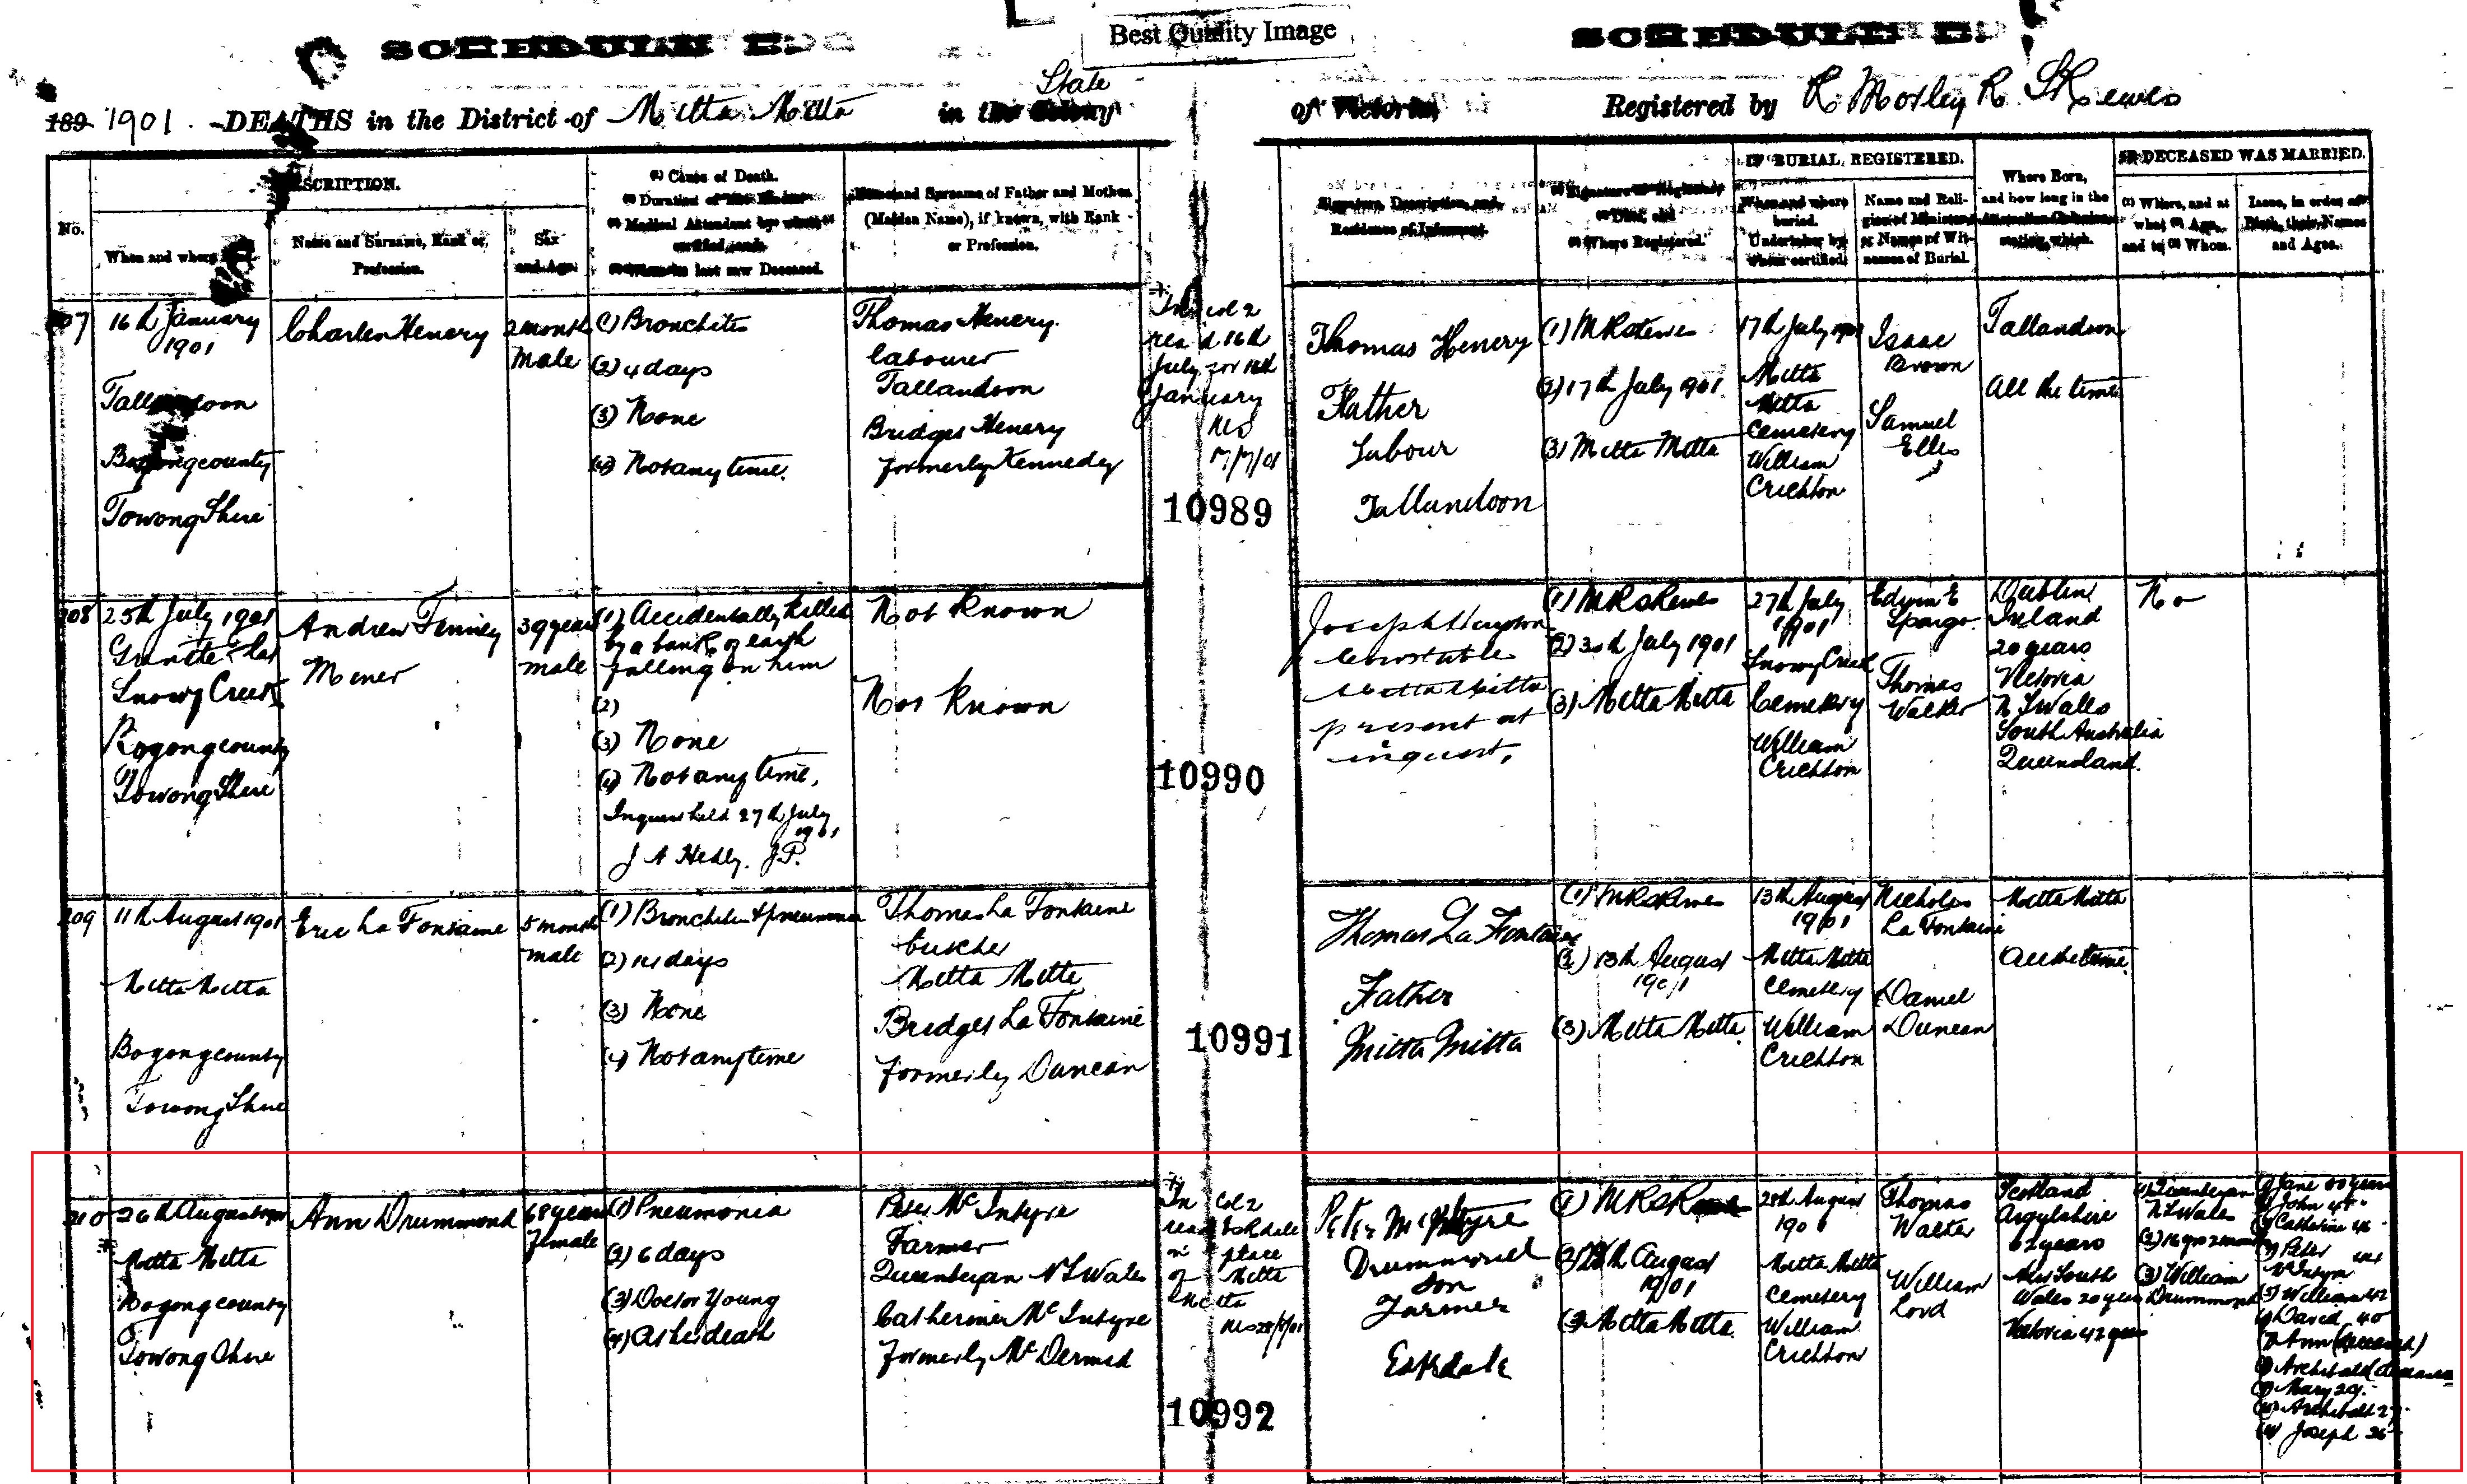 SCHEDULE B.
Best Quality Image
SCHEDULE B.
State
189 1901. DEATHS in the District of Mitta Mitta in the Colony of Victoria,
Registered by R. Morley R. Skewes
No.
DESCRIPTION.
When and where
Name and Surname, Rank or
Profession.
Sex
and Age.
(1) Cause of Death.
(2) Duration of
(3) Medical Attendant by whom
certified, and
(4) When he last saw Deceased.
Name and Surname of Father and Mother
(Maiden Name), if known, with Rank
or Profession.
Signature, Description, and
Residence of Informant.
(1) Signature of Registrar,
(2) Date, and
(3) Where Registered.
IF BURIAL, REGISTERED.
When and where
buried.
Undertaker by
whom certified.
Name and Reli-
gion of Minister
or Names of Wit-
nesses of Burial.
Where Born,
and how long in the
Australian Colonies,
stating which.
IF DECEASED WAS MARRIED.
(1) Where, and at
what (2) Age,
and to (3) Whom.
Issue, in order of
Birth, their Names
and Ages.
207
16th January
1901
Tallandoon
Bogong county
Towong Shire
Charles Henery
2 months
male
(1) Bronchitis
(2) 4 days
(3) None
(4) Not any time.
Thomas Henery.
labourer
Tallandoon
Bridget Henery
formerly Kennedy
In col 2
read 16th
July for 16th
January
MS
17/7/01
10989
Thomas Henery
Father
Labour
Tallandoon
(1) M R Skewes
(2) 17th July 1901
(3) Mitta Mitta
17th July 1901
Mitta
Mitta
Cemetery
William
Crichton
Isaac
Brown
Samuel
Elles
Tallandoon
All the time
208
25th July 1901
Granite Flat
Snowy Creek
Bogong county
Towong Shire
Andrew Finney
Miner
39 years
male
(1) Accidentally killed
by a bank of earth
falling on him
(2)
(3) None
(4) Not any time,
Inquest held 27th July
1901
J A Hedly. J.P.
Not known
Not known
10990
Joseph
Constable
Mitta Mitta
present at
inquest.
(1) M R Skewes
(2) 30th July 1901
(3) Mitta Mitta
27th July
1901
Snowy Creek
Cemetery
William
Crichton
Edwin E
Spargo.
Thomas
Walker
Dublin
Ireland
20 years
Victoria
N S Wales
South Australia
Queensland.
No
209
11th August 1901
Mitta Mitta
Bogong county
Towong Shire
Eric La Fontaine
5 months
male
(1) Bronchitis & pneumonia
(2) 14 days
(3) None
(4) Not any time
Thomas La Fontaine
butcher
Mitta Mitta
Bridget La Fontaine
formerly Duncan
10991
Thomas La Fontaine
Father
Mitta Mitta
(1) M R Skewes
(2) 13th August
1901
(3) Mitta Mitta
13th August
1901
Mitta Mitta
Cemetery
William
Crichton
Nicholas
La Fontaine
Daniel
Duncan
Mitta Mitta
All the time.
210
26th August 1901
Mitta Mitta
Bogong county
Towong Shire
Ann Drummond
68 years
female
(1) Pneumonia
(2) 6 days
(3) Doctor Young
(4) At her death
Peter McIntyre
Farmer
Queanbeyan N S Wales
Catherine McIntyre
formerly McDermid
In Col 2
read Eskdale
in place
of Mitta
Mitta
MS 28/8/01
10992
Peter McIntyre
Drummond
Son
Farmer
Eskdale
(1) M R Skewes
(2) 28th August
1901
(3) Mitta Mitta.
28th August
1901
Mitta Mitta
Cemetery
William
Crichton
Thomas
Walter
William
Lord
Scotland
Argyleshire
62 years
New South
Wales 20 years
Victoria 42 years
(1) Queanbeyan
N S Wales
(2) 16 yrs 2 months
(3) William
Drummond
(1) Jane 50 years
(2) John 48
(3) Catherine 46
(4) Peter 44
McIntyre
(5) William 42
(6) David 40
(7) Ann (deceased)
(8) Archibald (deceased)
(9) Mary 29.
(10) Archibald 27
(11) Joseph 26